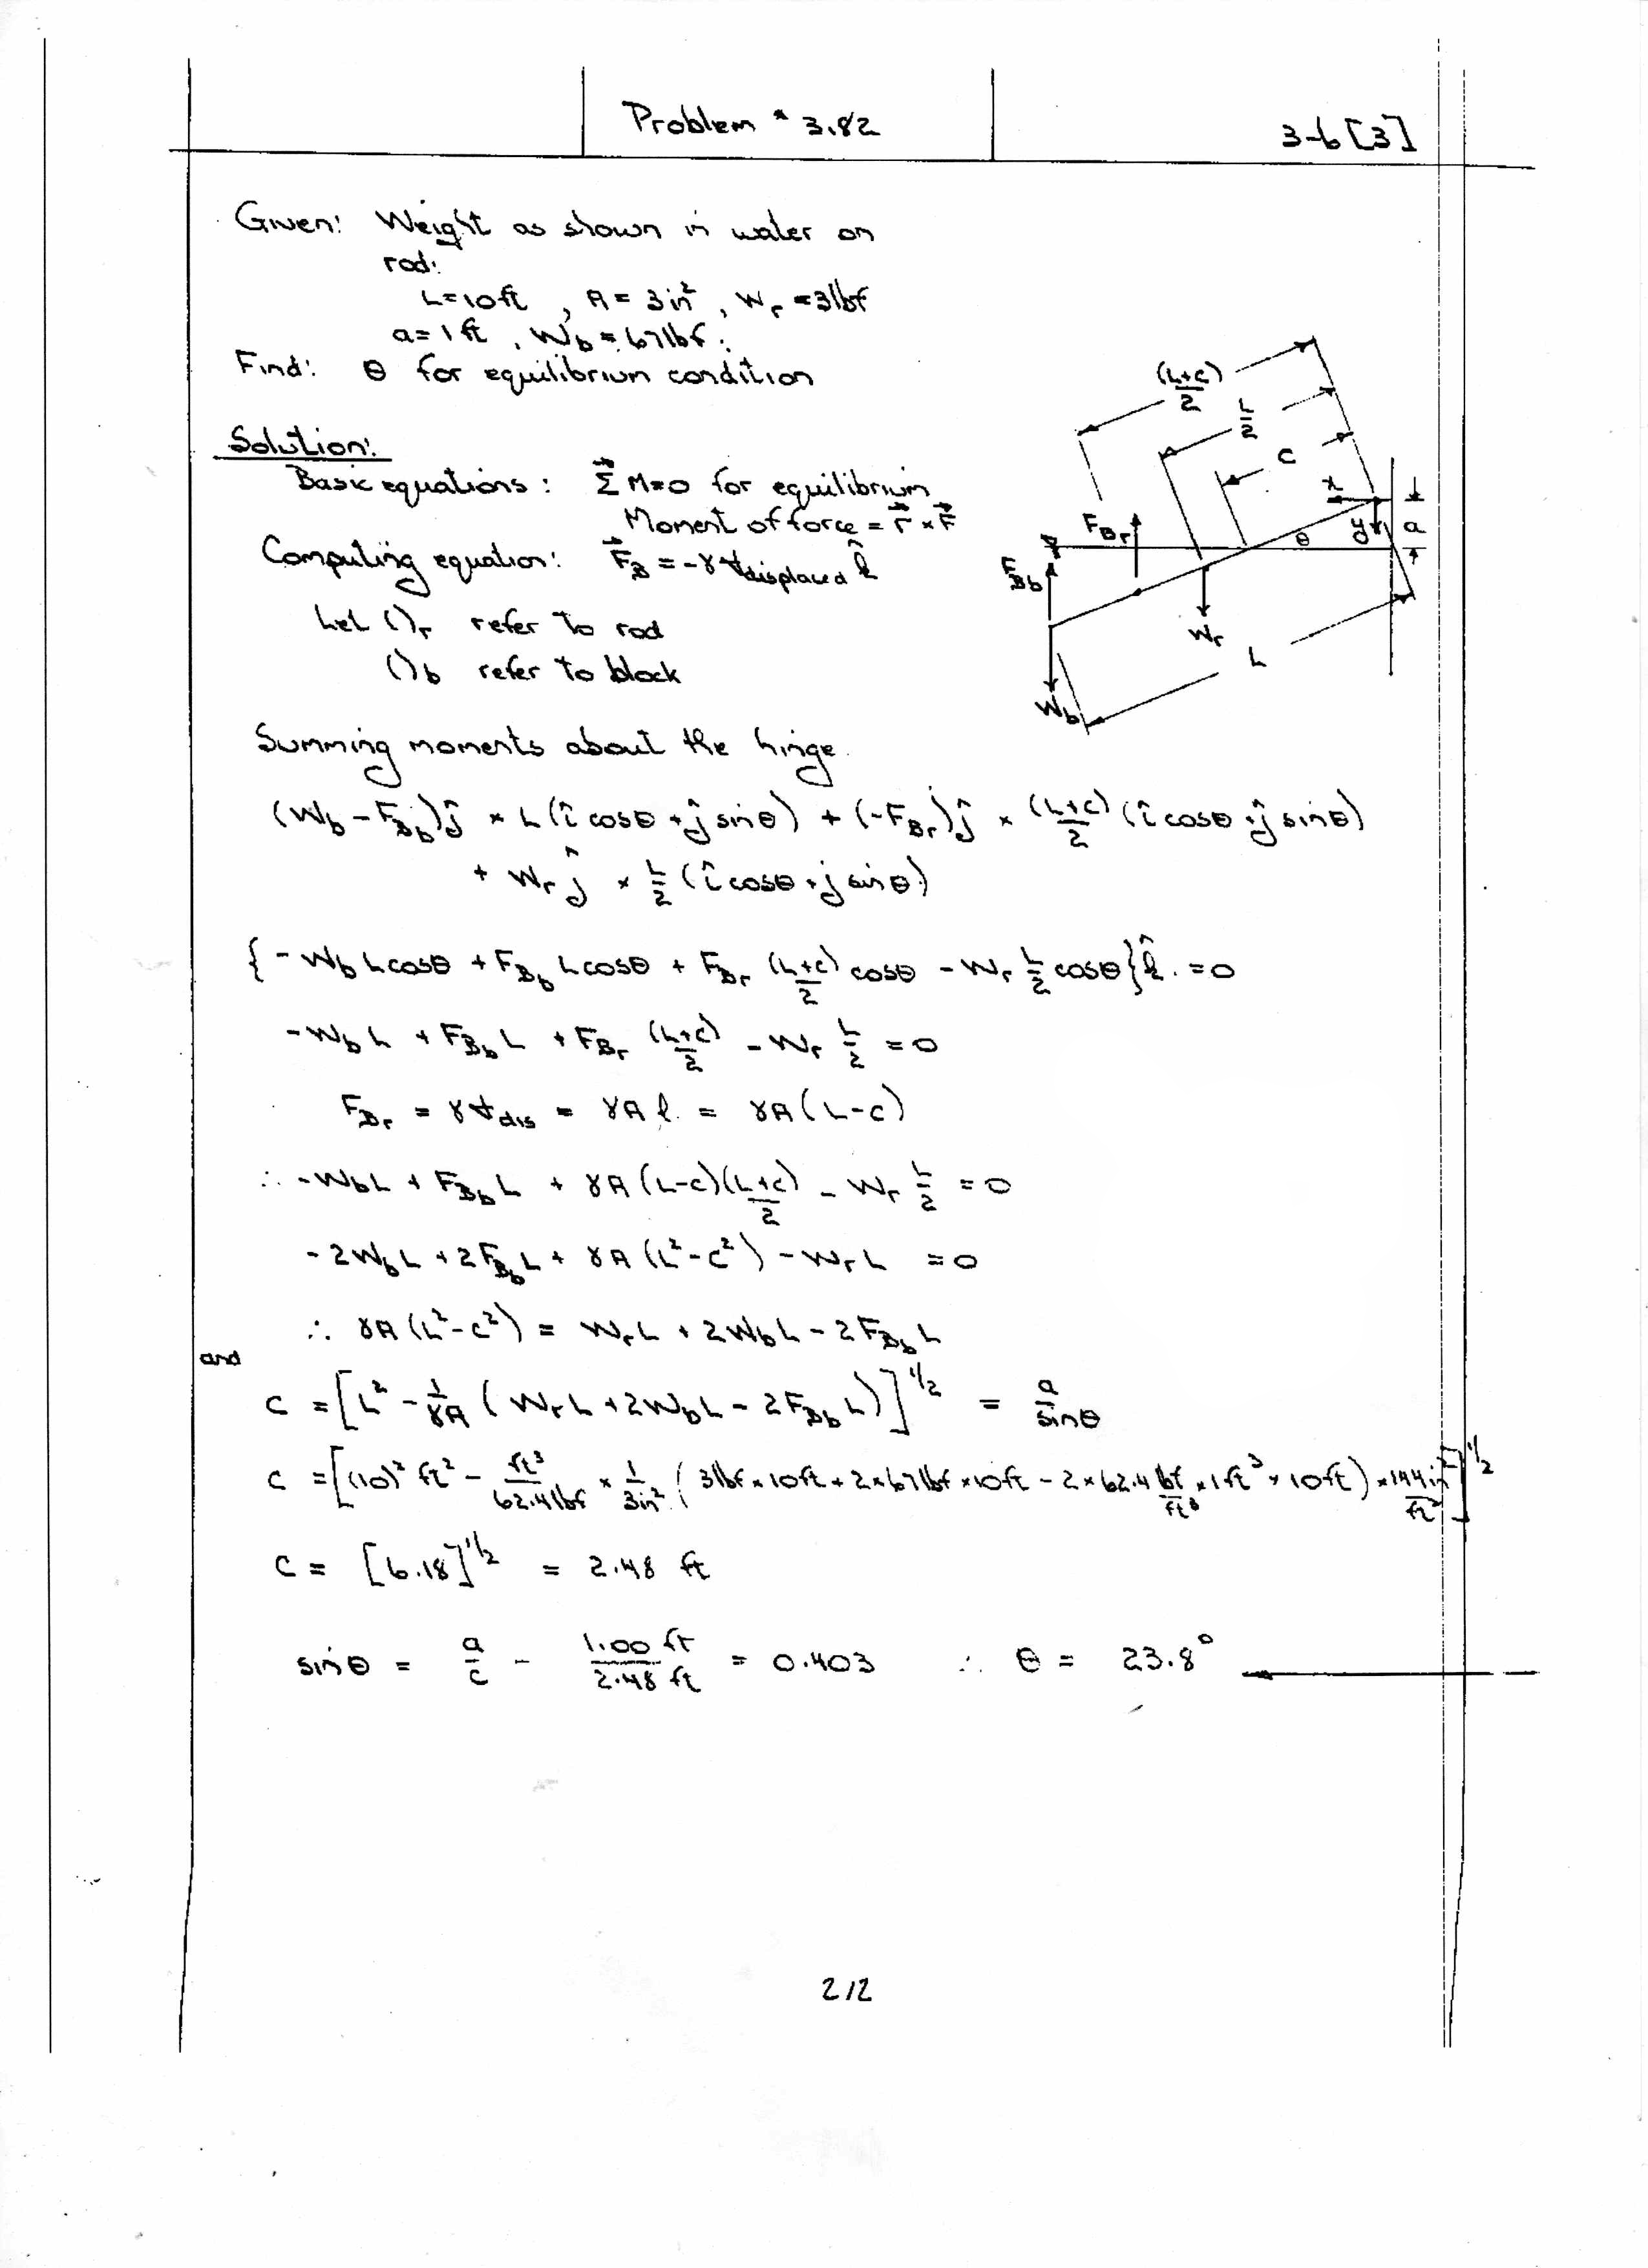 Problem * 3.82
3-6 [3]
Given: Weight as shown in water on
rod:
L=10ft , A = 3in², Wr = 3lbf
a = 1 ft , Wb = 67lbf.
Find: θ for equilibrium condition
Solution:
Basic equations: Σ⃗ M=0 for equilibrium
Moment of force = r⃗ × F⃗
Computing equation: F⃗B = -γ V̶displaced k̂
Let ( )r refer to rod
( )b refer to block
(L+c)/2
L/2
c
x
y
a
θ
FBr
FBb
Wr
L
Wb
Summing moments about the hinge.
(Wb - FBb)ĵ × L(î cosθ + ĵ sinθ) + (-FBr)ĵ × (L+c)/2 (î cosθ + ĵ sinθ)
+ Wr ĵ × L/2 (î cosθ + j sinθ)
{ - Wb L cosθ + FBb L cosθ + FBr (L+c)/2 cosθ - Wr L/2 cosθ } k̂. = 0
- Wb L + FBb L + FBr (L+c)/2 - Wr L/2 = 0
FBr = γ V̶dis = γ A ℓ. = γA (L-c)
∴ -WbL + FBb L + γA (L-c)(L+c)/2 - Wr L/2 = 0
- 2WbL + 2FBbL + γA (L²-c²) - WrL = 0
∴ γA (L²-c²) = WrL + 2WbL - 2FBbL
and
c = [L² - 1/γA ( WrL + 2WbL - 2FBbL)]^1/2 = a/sinθ
c = [(10)² ft² - ft³/62.4lbf × 1/3in² ( 3lbf × 10ft + 2×67lbf ×10ft - 2×62.4 lbf/ft³ ×1ft³ × 10ft ) × 144in²/ft²]^1/2
c = [6.18]^1/2 = 2.48 ft
sinθ = a/c - 1.00 ft/2.48 ft = 0.403 ∴ θ = 23.8°
212